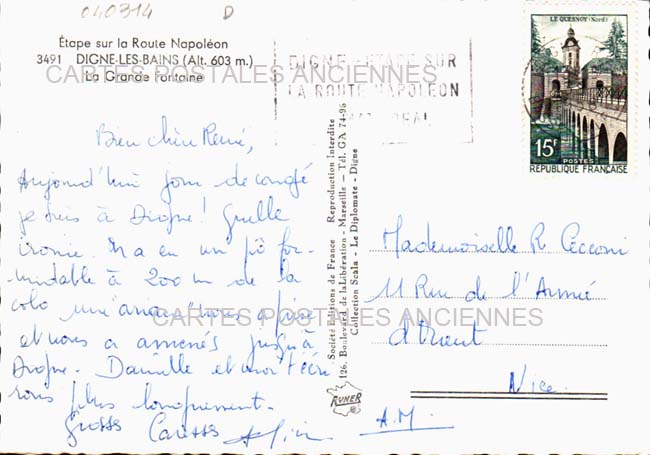 040314 D
Étape sur la Route Napoléon
3491 DIGNE-LES-BAINS (Alt. 603 m.)
La Grande Fontaine
CARTES POSTALES ANCIENNES
DIGNE ETAPE SUR
LA ROUTE NAPOLEON
LE QUESNOY (Nord)
15F
POSTES
RÉPUBLIQUE FRANÇAISE
Bien chère Renée,
Aujourd'hui jour de congé
je suis à Digne! Quelle
ironie. Il y a eu un pô for-
midable à 200 m de la
colo une "ariane" nous a pris
et nous a amenés jusqu'à
Digne. Danielle et moi t'écri
rons plus longuement.
Grosses Caresses
Société Editions de France Reproduction Interdite
126, Boulevard de la Libération - Marseille - Tél. GA 74-96
Collection Scala - Le Diplomate - Digne
RYNER
Mademoiselle R Cecconi
11 Rue de l'Armée
d'Orient
Nice.
A.M.
CARTES POSTALES ANCIENNES